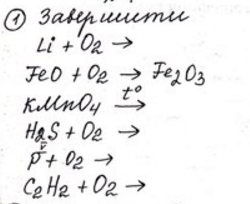 ① Завершити
Li + O₂ →
FeO + O₂ → Fe₂O₃
KMnO₄ —t°→
H₂S + O₂ →
P + O₂ →
C₂H₂ + O₂ →